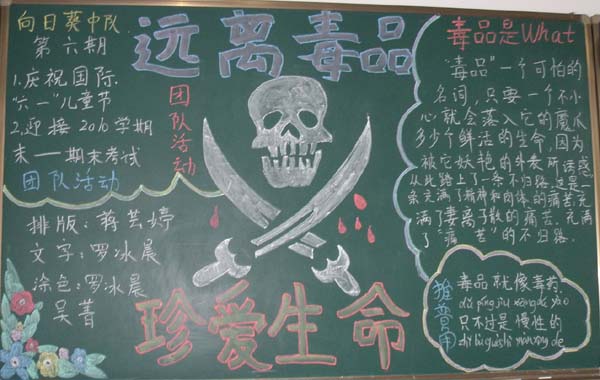 向日葵中队
第六期
1.庆祝国际
"六一"儿童节
2.迎接2010学期
末——期末考试
团队活动
排版:蒋芸婷
文字:罗冰晨
涂色:罗冰晨
吴菁
远离毒品
团队活动
珍爱生命
毒品是What
"毒品"一个可怕的
名词,只要一个不小
心就会落入它的魔爪
多少个鲜活的生命,因为
被它妖艳的外表所诱惑
从此踏上了一条不归路,这是一
条充满了精神和肉体的痛苦,充
满了妻离子散的痛苦、充满
了"痛苦"的不归路.
推普角
毒品就像毒药
dú pǐn jiù xiàng dú yào
只不过是慢性的